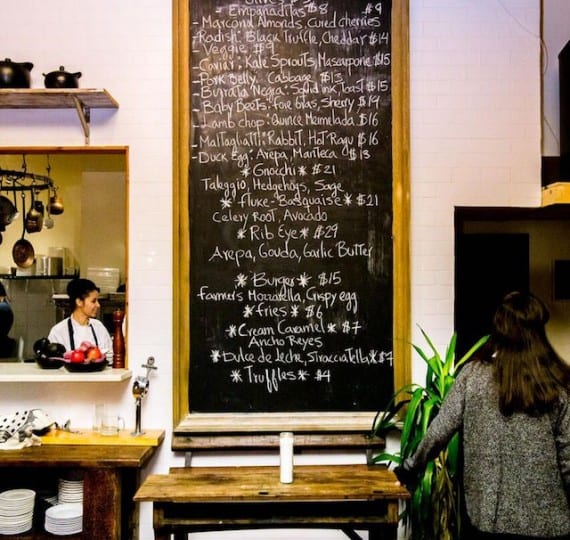 Empanaditas $8 $9
- Marcona Almonds, Cured cherries
- Radish: Black Truffle, Cheddar $14
- Veggie $9
- Caviar: Kale Sprouts, Mascarpone $15
- Pork Belly: Cabbage $13
- Burrata Negra: Squid ink, Toast $15
- Baby Beets: Foie Gras, Sherry $14
- Lamb chop: Quince Mermelada $16
- Maltagliatti: Rabbit, Hot Ragu $16
- Duck Egg: Arepa, Manteca $13
* Gnocchi * $21
Taleggio, Hedgehogs, Sage
* Fluke-Basquaise * $21
Celery Root, Avocado
* Rib Eye * $29
Arepa, Gouda, Garlic Butter
* Burger * $15
Farmer's Mozzarella, Crispy egg
* fries * $6
* Cream Caramel * $7
Ancho Reyes
* Dulce de Leche, Stracciatella * $7
* Truffles * $4